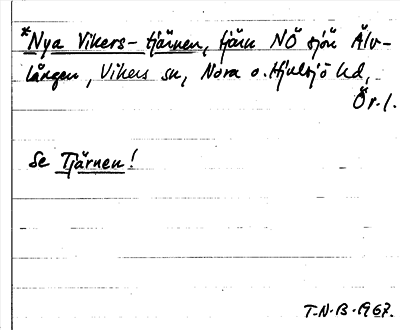 *Nya Vikers-tjärnen, tjärn NÖ sjön Älv-
lången, Vikers sn, Nora o. Hjulsjö hd,
Ör.l.
Se Tjärnen!
T-N-B-1967.